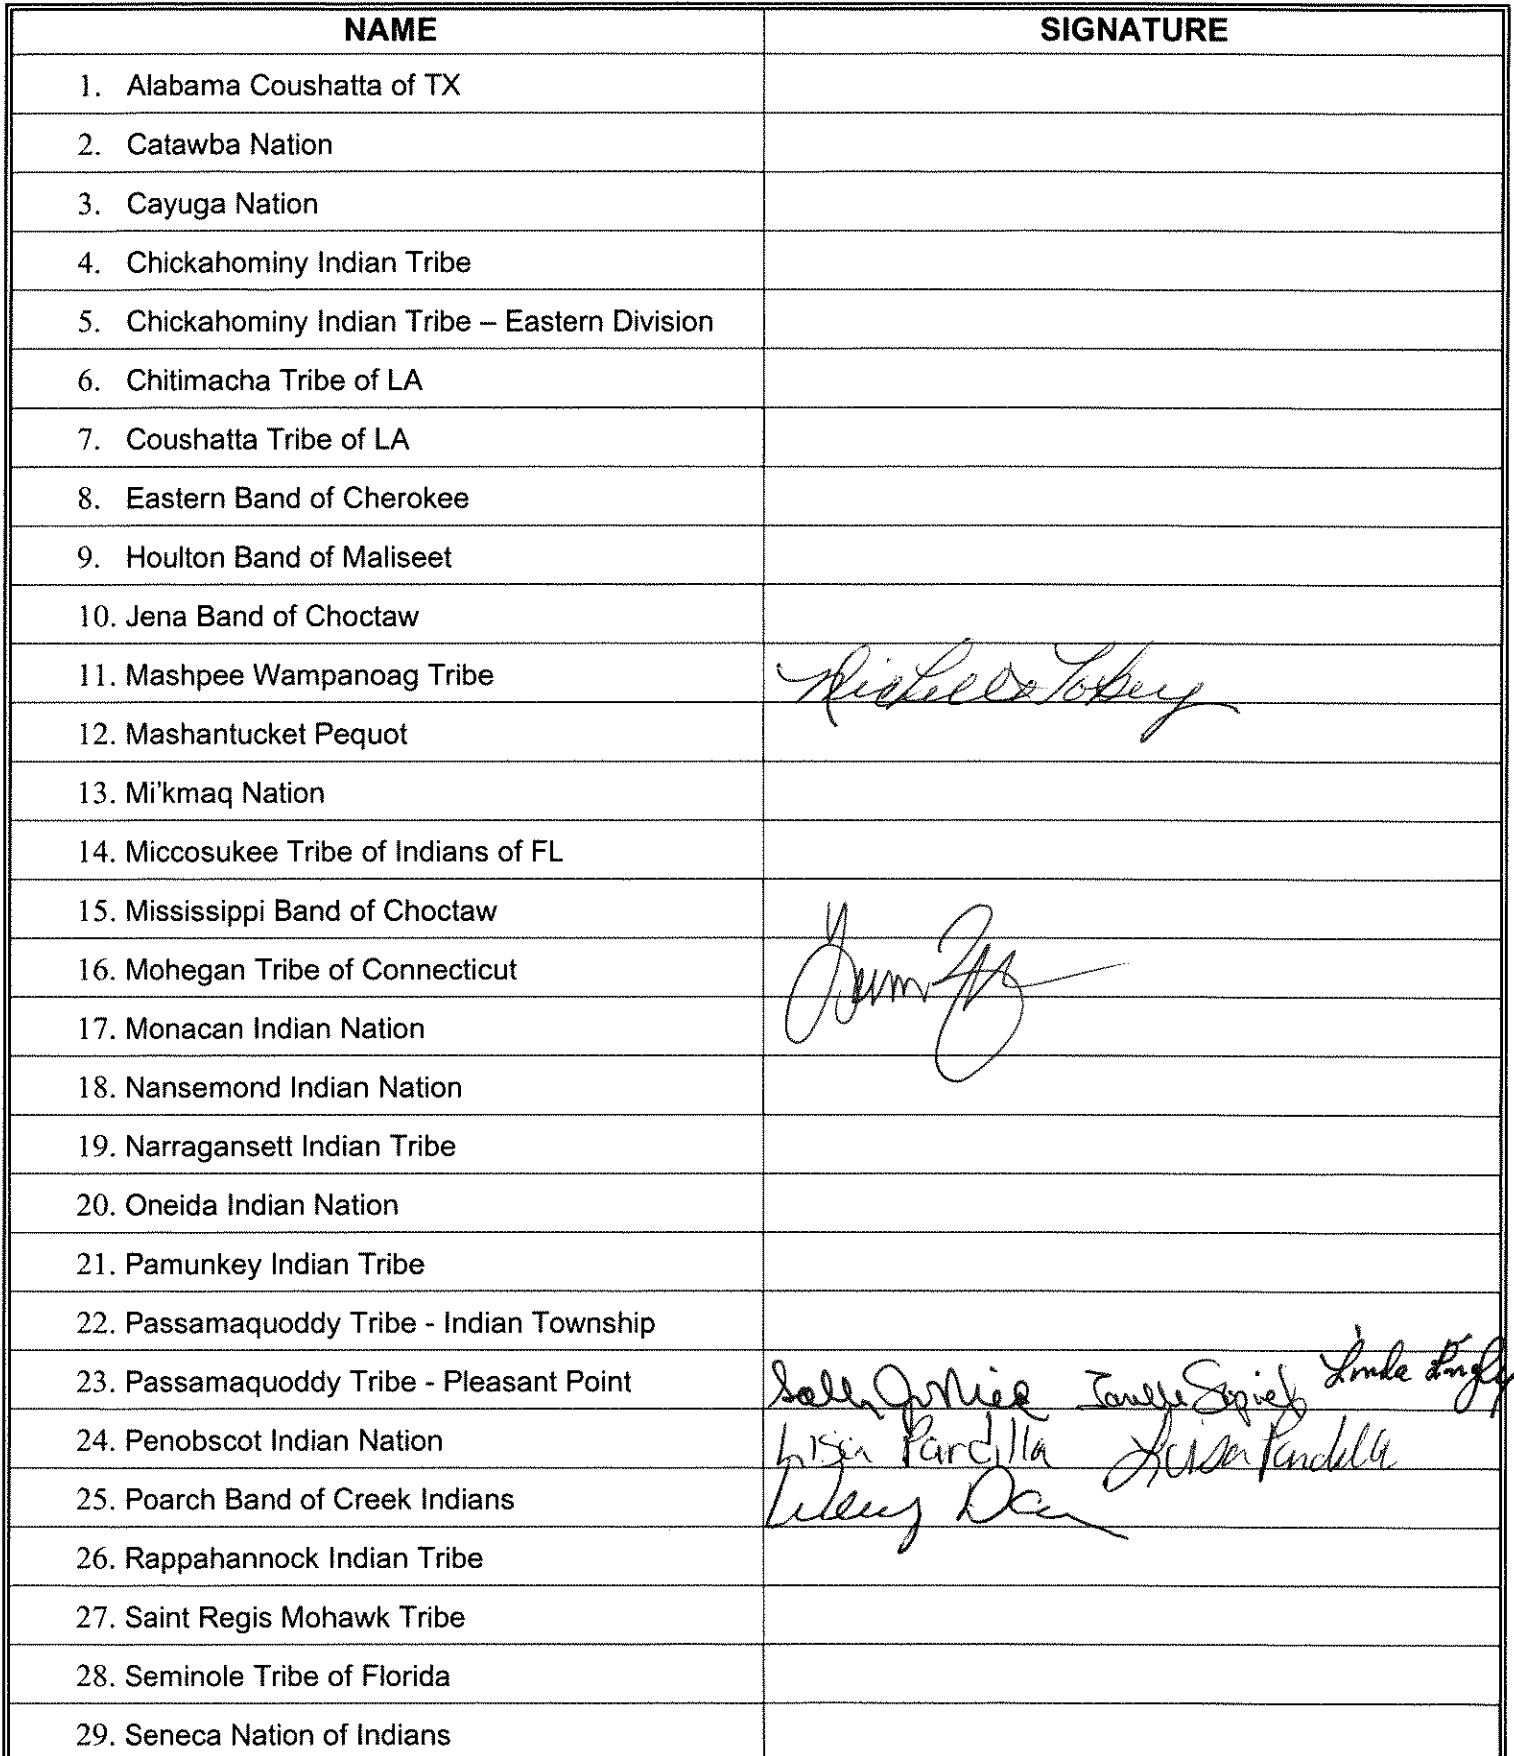 NAME SIGNATURE
1. Alabama Coushatta of TX
2. Catawba Nation
3. Cayuga Nation
4. Chickahominy Indian Tribe
5. Chickahominy Indian Tribe – Eastern Division
6. Chitimacha Tribe of LA
7. Coushatta Tribe of LA
8. Eastern Band of Cherokee
9. Houlton Band of Maliseet
10. Jena Band of Choctaw
11. Mashpee Wampanoag Tribe Michelle Tobey
12. Mashantucket Pequot
13. Mi'kmaq Nation
14. Miccosukee Tribe of Indians of FL
15. Mississippi Band of Choctaw
16. Mohegan Tribe of Connecticut
17. Monacan Indian Nation
18. Nansemond Indian Nation
19. Narragansett Indian Tribe
20. Oneida Indian Nation
21. Pamunkey Indian Tribe
22. Passamaquoddy Tribe - Indian Township
23. Passamaquoddy Tribe - Pleasant Point Linda
24. Penobscot Indian Nation Lisa Pardilla Lisa Pardilla
25. Poarch Band of Creek Indians
26. Rappahannock Indian Tribe
27. Saint Regis Mohawk Tribe
28. Seminole Tribe of Florida
29. Seneca Nation of Indians